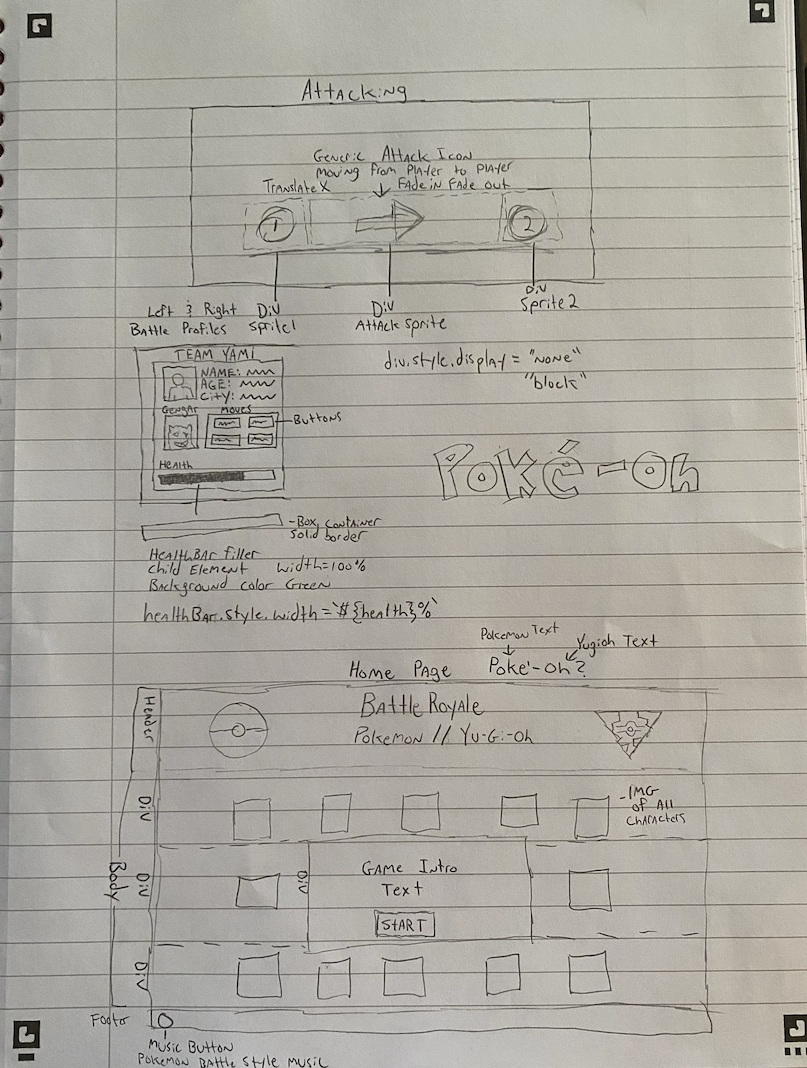 Attacking
Generic Attack Icon
moving from Player to Player
TranslateX
Fade in Fade out
1
2
Left & Right
Battle Profiles
Div
Sprite1
Div
Attack Sprite
Div
Sprite 2
TEAM YAMI
NAME:
AGE:
City:
Gengar
Moves
Buttons
Health
div.style.display = "none"
"block"
Poké-Oh
-Box, container
Solid border
HealthBar filler
Child Element width=100%
Background color Green
healthBar.style.width =`#{health}%`
Pokemon Text
Yugioh Text
Home Page
Poke'-oh?
Header
Battle Royale
Pokemon // Yu-Gi-Oh
Body
Div
-IMG
of All
Characters
Div
Div
Game Intro
Text
START
Div
Footer
Music Button
Pokemon Battle Style Music